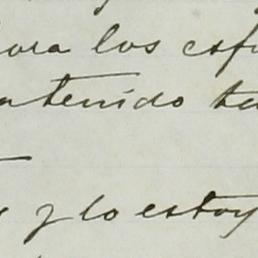 los esf
atenido ta
y lo estoy